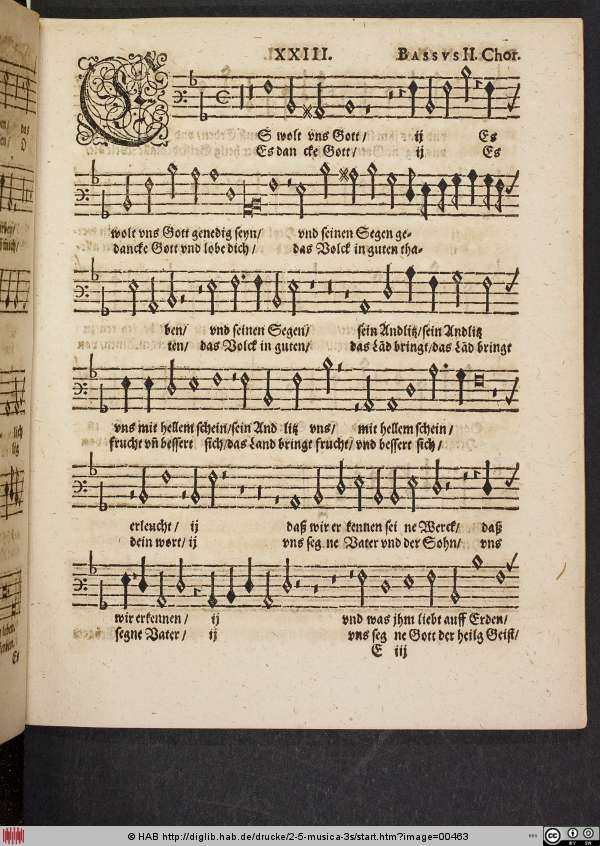 XXIII. BASSVS II. Chor.
ES wolt vns Gott/ ij Es
Es dan cke Gott/ ij Es
wolt vns Gott genedig seyn/ vnd seinen Segen ge-
dancke Gott vnd lobe dich/ das Volck in guten tha-
ben/ vnd seinen Segen/ sein Andlitz/sein Andlitz
ten/ das Volck in guten/ das Lād bringt/das Lād bringt
vns mit hellem schein/sein And litz vns/ mit hellem schein/
frucht vn̄ bessert sich/das Land bringt frucht/ vnd bessert sich/
erleucht/ ij daß wir er kennen sei ne Werck/ daß
dein wort/ ij vns seg ne Vater vnd der Sohn/ vns
wir erkennen/ ij vnd was jhm liebt auff Erden/
segne Vater/ ij vns seg ne Gott der heilg Geist/
E iij
© HAB http://diglib.hab.de/drucke/2-5-musica-3s/start.htm?image=00463